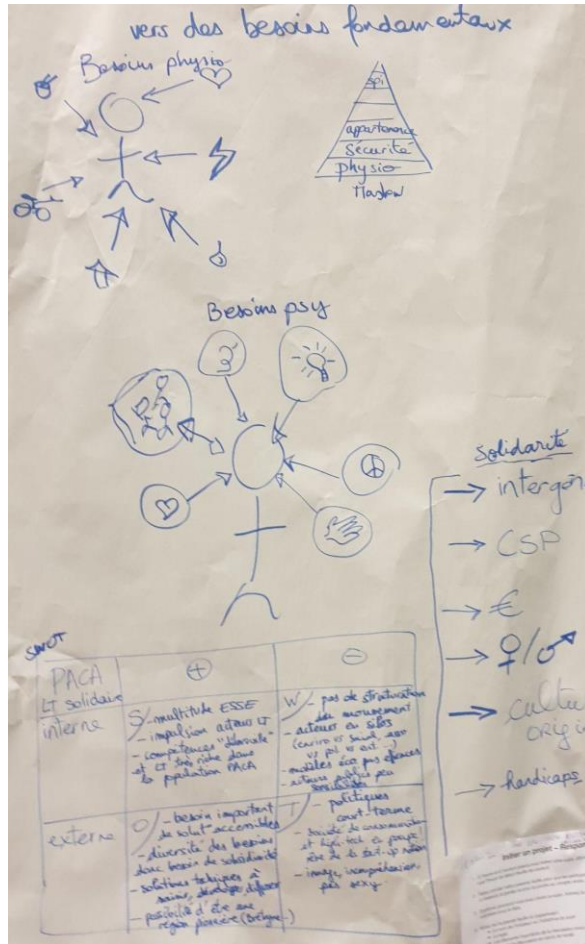 vers des besoins fondamentaux
Besoins physio
spi
appartenance
sécurité
physio
Maslow
Besoins psy
Solidarité
→ intergén
→ CSP
→ €
→ ♀/♂
→ cultu
origi
→ handicaps
SWOT
PACA
LT solidaire
+
-
interne
S
- multitude ESSE
- impulsion acteurs LT
- compétences
et LT très riche dans
la population PACA
W
- pas de structuration
du mouvement
- acteurs en silos
(enviro vs social, asso
vs pol vs ent...)
- modèles éco pas efficaces
- acteurs publics peu
externe
O
- besoin important
de solut° accessibles
- diversité des besoins
donc besoin de subsidiarité
- solutions techniques à
développer, diffuser
- possibilité d'être une
région pionnière (Bretagne...)
T
- politiques
court-terme
- société de consommation
et high-tech
rêve de la start-up nation
- image, incompréhension,
pas sexy